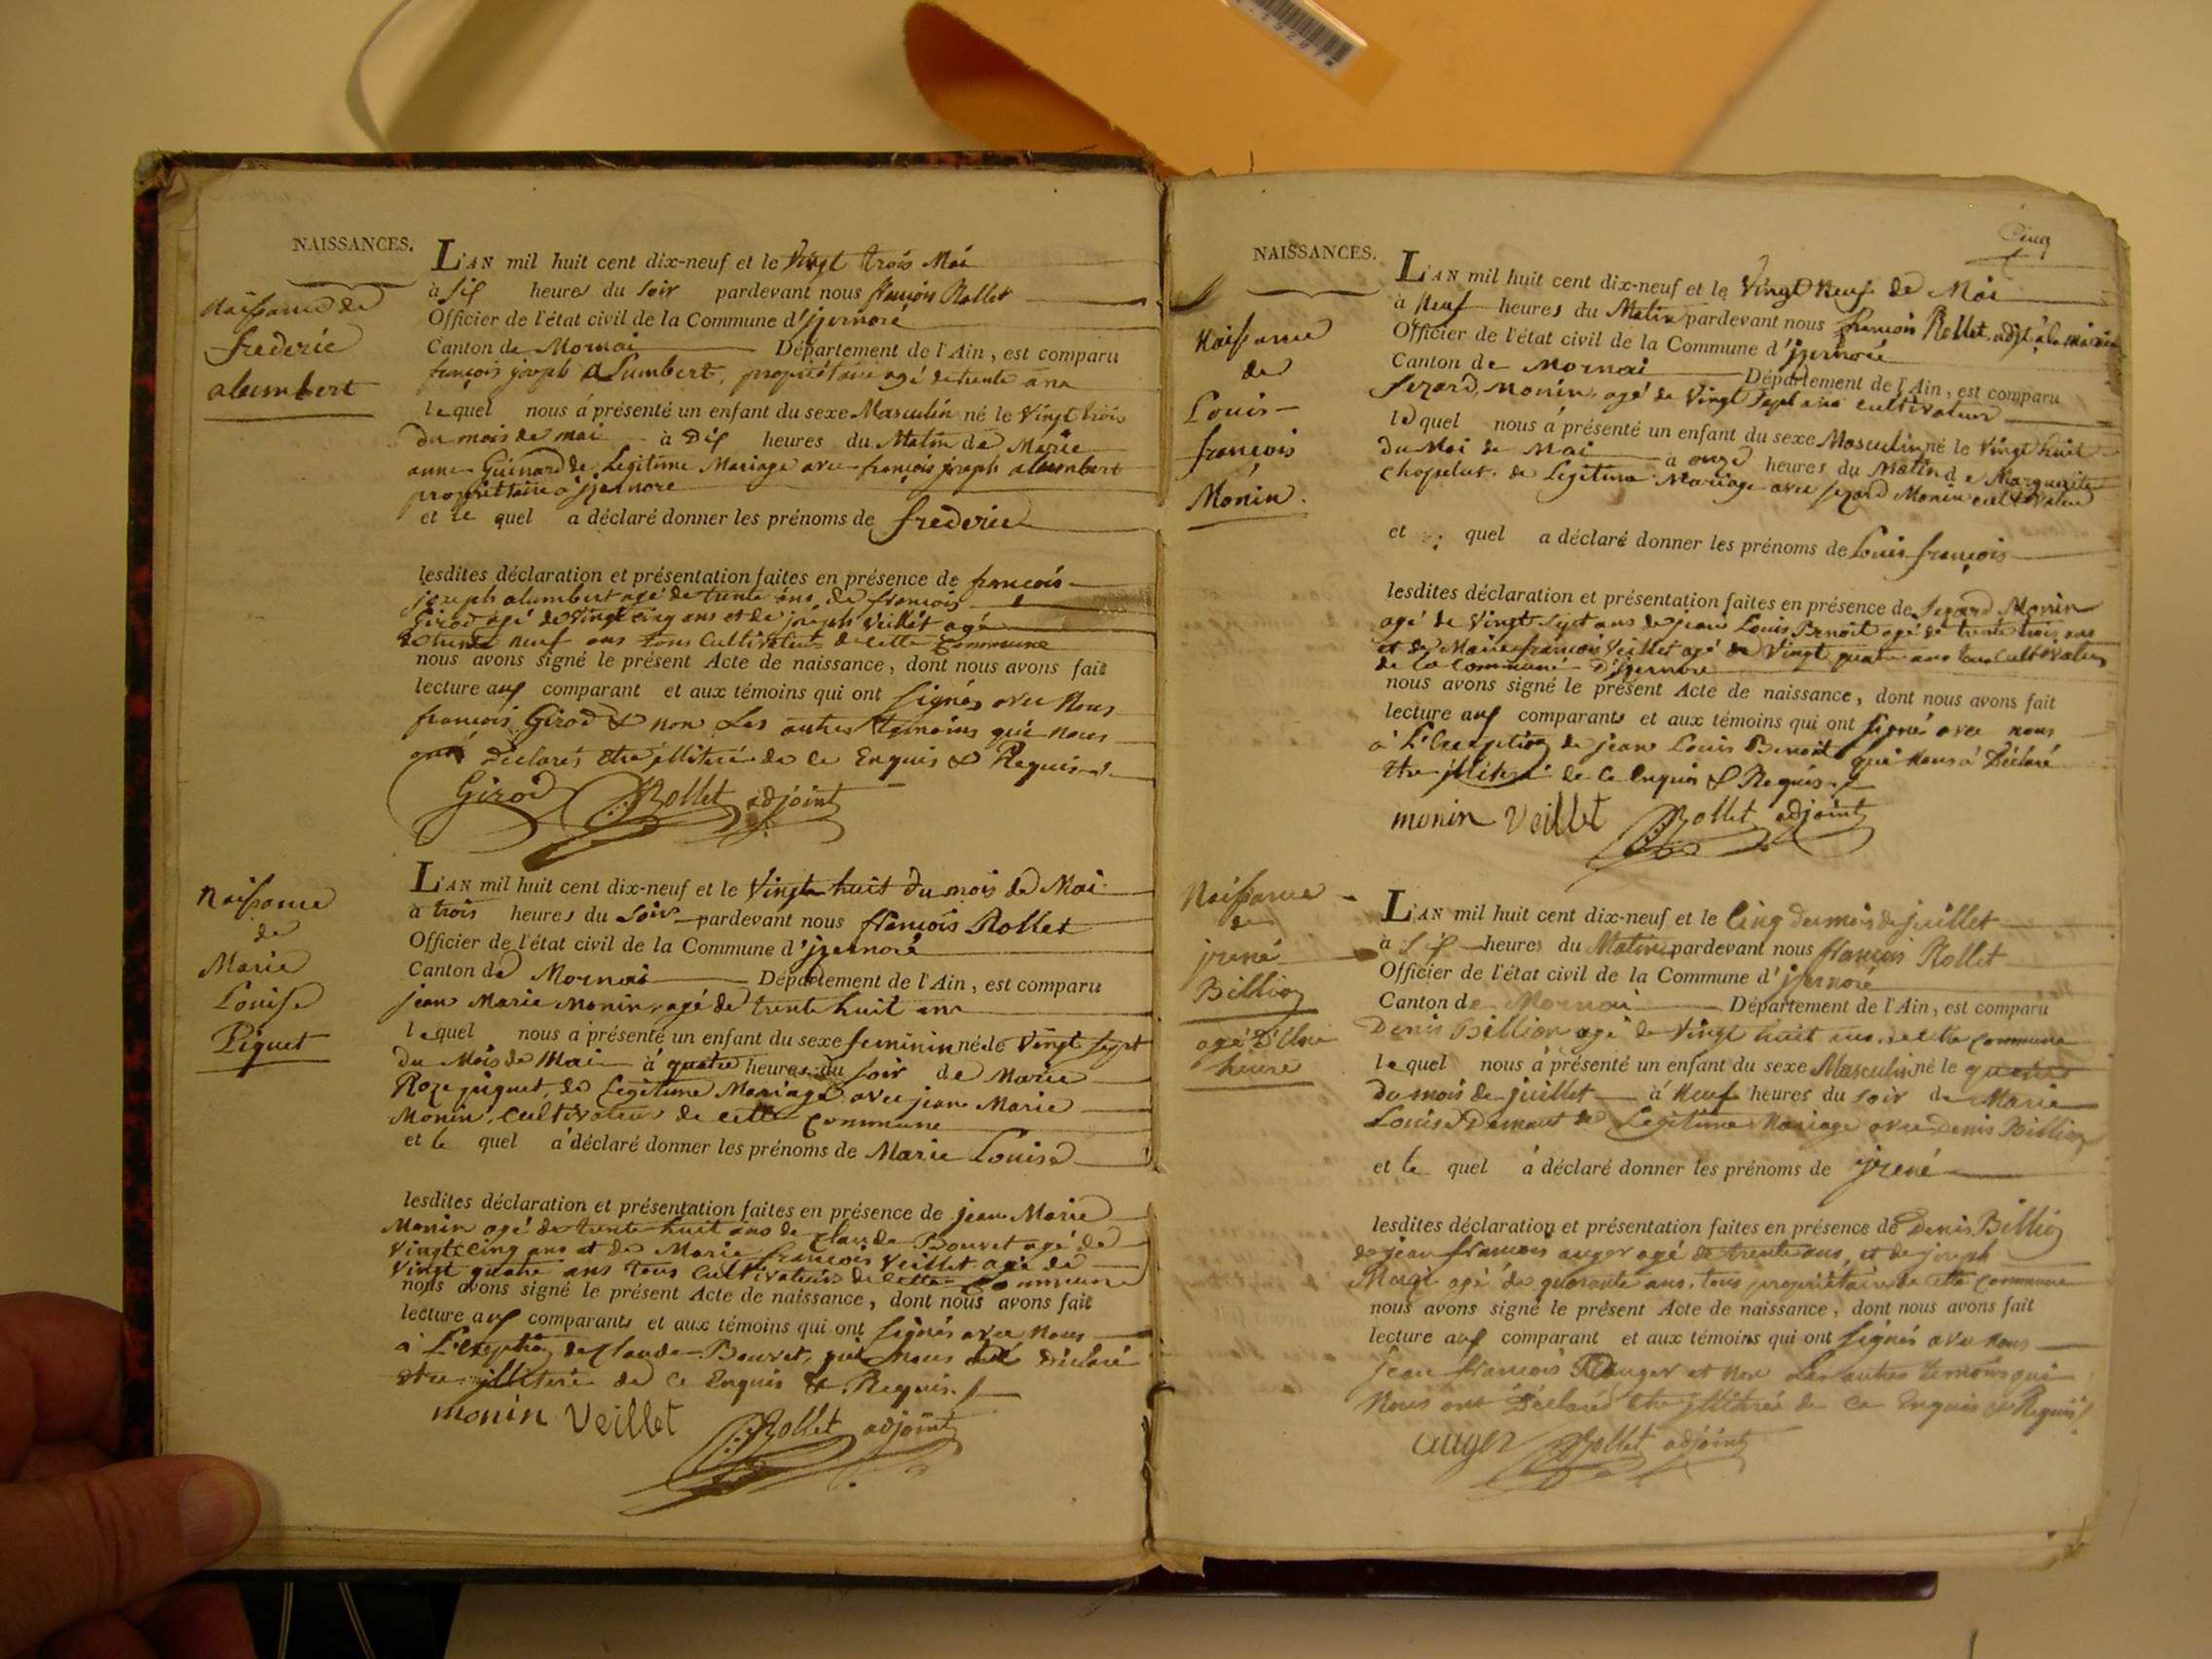 NAISSANCES.
Naissance de
frederic
alumbert
L'AN mil huit cent dix-neuf et le Vingt trois Mai
à six heures du soir pardevant nous francois Rollet
Officier de l'état civil de la Commune d'jzernore
Canton de Mornai Département de l'Ain, est comparu
francois joseph alumbert, propriétaire agé de trente ans
lequel nous à présenté un enfant du sexe Masculin né le Vingt trois
du mois de mai à Dix heures du Matin de Marie
anne Guinard de Legitime Mariage avec francois joseph alumbert
propriettaire à jzernore
et le quel a déclaré donner les prénoms de frederic
lesdites déclaration et présentation faites en présence de francois
joseph alumbert agé de trente ans de francois
Girod agé de Vingt cinq ans et de joseph Veillet agé
de trente neuf ans tous Cultivateurs de cette Commune
nous avons signé le présent Acte de naissance, dont nous avons fait
lecture aux comparant et aux témoins qui ont signés avec Nous
francois Girod & non Les autres temoins qui nous
ont Déclarés etre illiteré de ce Enquis & Requis
Girod Rollet adjoint
Naissance
de
Marie
Louise
Piquet
L'AN mil huit cent dix-neuf et le Vingt huit du mois de Mai
à trois heures du Soir pardevant nous francois Rollet
Officier de l'état civil de la Commune d'jzernoré
Canton de Mornai Département de l'Ain, est comparu
jean Marie Monin agé de trente huit ans
lequel nous a présenté un enfant du sexe feminin né le Vingt sept
du Mois de Mai à quatre heures du soir de Marie
Roze piquet, de Legitime Mariage avec jean Marie
Monin, Cultivateur de cette Commune
et le quel à déclaré donner les prénoms de Marie Louise
lesdites déclaration et présentation faites en présence de jean Marie
Monin agé de trente huit ans de Claude Bouvet agé de
Vingt cinq ans et de Marie francois Veillet agé de
Vingt quatre ans tous Cultivateurs de cette Commune
nous avons signé le présent Acte de naissance, dont nous avons fait
lecture aux comparants et aux témoins qui ont signés avec Nous
à L'exeption de Claude Bouvet, qui Nous déclaré
etre illiteré de ce Enquis & Requis
monin Veillet
Rollet adjoint
Cinq
NAISSANCES.
Naissance
de
Louis
francois
Monin.
L'AN mil huit cent dix-neuf et le Vingt Neuf de Mai
à Neuf heures du Matin pardevant nous francois Rollet adjt à la mairie
Officier de l'état civil de la Commune d'jzernoré
Canton de Mornai Département de l'Ain, est comparu
Monin, agé de Vingt Sept ans cultivateur
lequel nous à présenté un enfant du sexe Masculin né le Vingt huit
du Moi de Mai à onze heures du Matin de Marguerite
Chapelut de Legitime Mariage avec Monin cultivateur
et quel a déclaré donner les prénoms de Louis francois
lesdites déclaration et présentation faites en présence de Monin
agé de Vingt Sept ans de jean Louis Benoit agé de trente trois ans
et de Marie francois Veillet agé de Vingt quatre ans tous Cultivateurs
de la Commune D'jzernore
nous avons signé le présent Acte de naissance, dont nous avons fait
lecture aux comparants et aux témoins qui ont signé avec nous
à L'exception de jean Louis Benoit qui Nous à Déclaré
etre illiteré de ce Enquis & Requis
monin Veillet Rollet adjoint
Naissance
de
jrené
Billion
agé D'Une
heure
L'AN mil huit cent dix-neuf et le Cinq du mois de juillet
à Six heures du Matin pardevant nous francois Rollet
Officier de l'état civil de la Commune d'jzernoré
Canton de Mornai Département de l'Ain, est comparu
Denis Billion agé de Vingt huit ans, de cette Commune
lequel nous à présenté un enfant du sexe Masculin né le quatre
du mois de juillet à Neuf heures du soir de Marie
Louise de Legitime Mariage avec Denis Billion
et le quel à déclaré donner les prénoms de jrené
lesdites déclaration et présentation faites en présence de Denis Billion
de jean francois auger agé de trente ans, et de joseph
agé de quarante ans, tous propriétaires de cette Commune
nous avons signé le présent Acte de naissance, dont nous avons fait
lecture aux comparant et aux témoins qui ont signés avec Nous
jean francois auger et non Les autres temoins qui
Nous ont Déclarés etre illiterés de Ce Enquis et Requis
auger Rollet adjoint